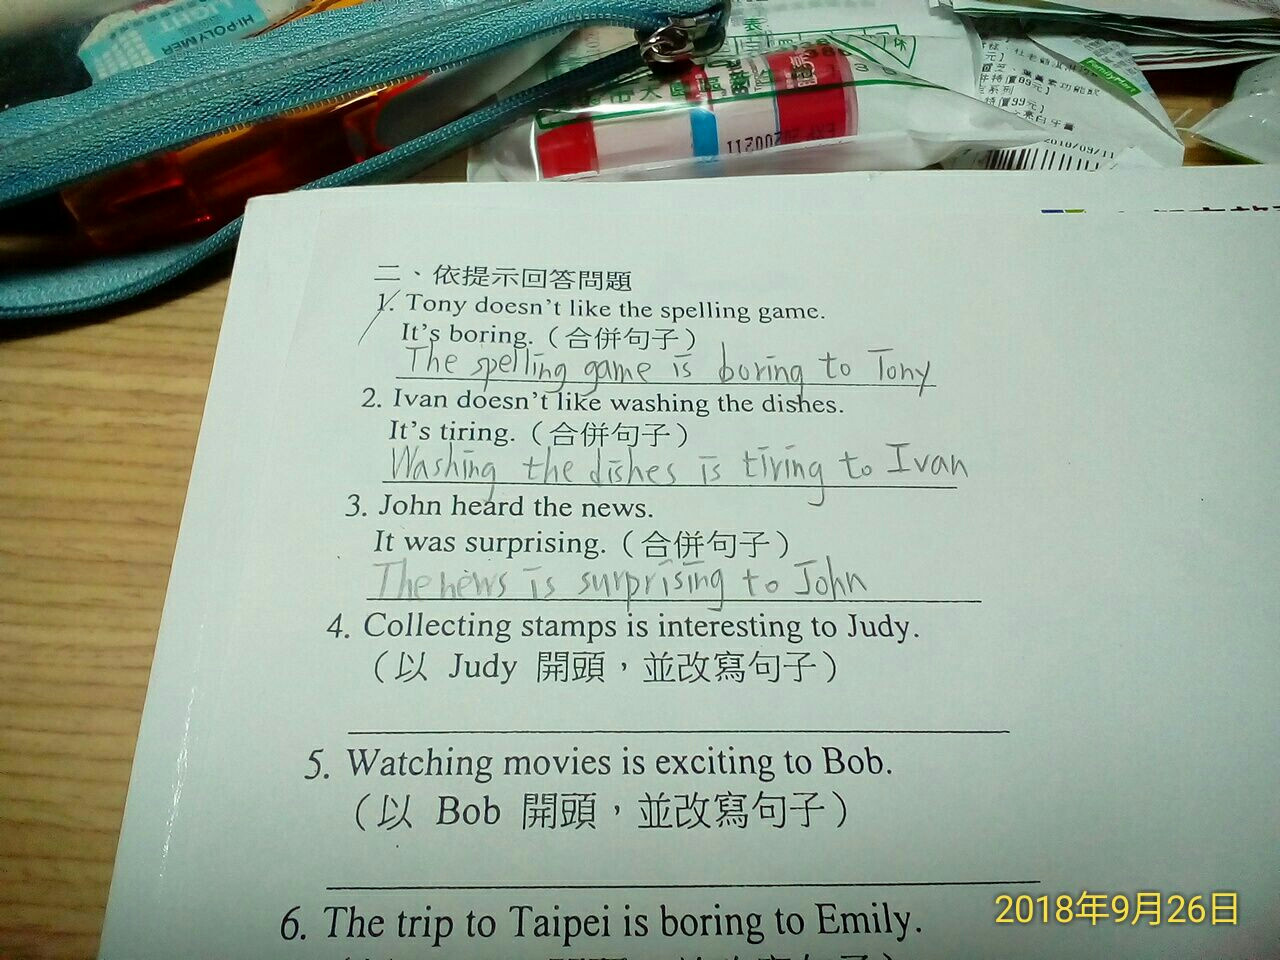 HI-POLYMER
LIGHT
表
EXP 20200211
FamilyMart
特價99元】
2018/09/11
二、依提示回答問題
1. Tony doesn't like the spelling game.
It's boring.（合併句子）
The spelling game is boring to Tony
2. Ivan doesn't like washing the dishes.
It's tiring.（合併句子）
Washing the dishes is tiring to Ivan
3. John heard the news.
It was surprising.（合併句子）
The news is surprising to John
4. Collecting stamps is interesting to Judy.
（以 Judy 開頭，並改寫句子）
5. Watching movies is exciting to Bob.
（以 Bob 開頭，並改寫句子）
6. The trip to Taipei is boring to Emily.
2018年9月26日